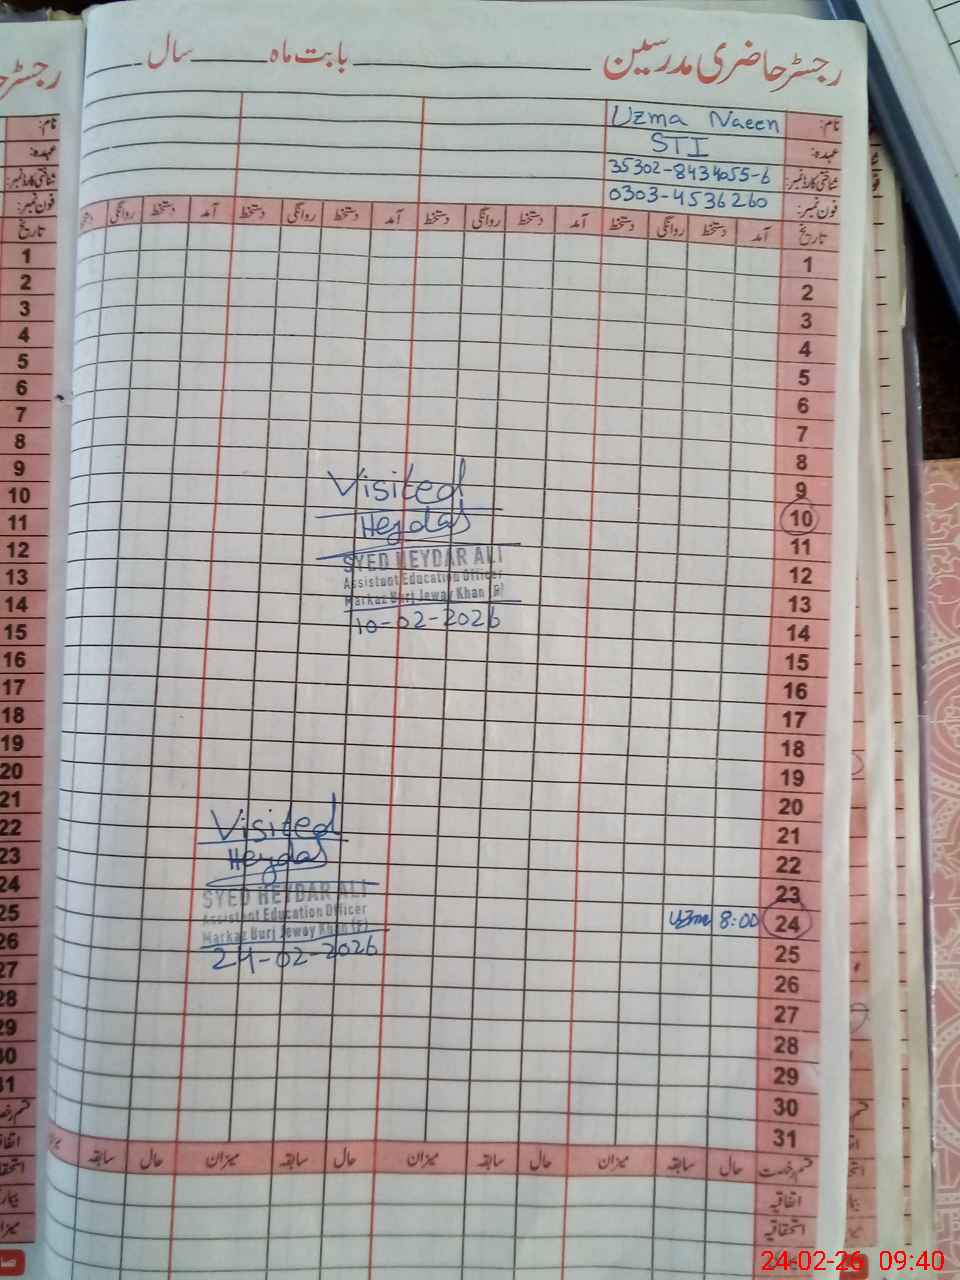 رجسٹر حاضری مدرسین ______ بابت ماہ ______ سال ______
نام: Uzma Naeen
عہدہ: STI
شناختی کارڈ نمبر: 35302-8434055-6
فون نمبر: 0303-4536260
تاریخ آمد دستخط روانگی دستخط آمد دستخط روانگی دستخط آمد دستخط روانگی دستخط آمد دستخط روانگی
1
2
3
4
5
6
7
8
9
10
11
12
13
14
15
16
17
18
19
20
21
22
23
24 8:00 Uzma
25
26
27
28
29
30
31
Visited
Heydar
SYED HEYDAR ALI
Assistant Education Officer
Markaz Burj Jeway Khan
10-02-2026
Visited
Heydar
SYED HEYDAR ALI
Assistant Education Officer
Markaz Burj Jeway Khan (F)
24-02-2026
قسم رخصت حال سابقہ میزان حال سابقہ میزان حال سابقہ میزان حال سابقہ
اتفاقیہ
استحقاقیہ
رجسٹر
نام:
عہدہ:
شناختی کارڈ نمبر:
فون نمبر:
تاریخ
1
2
3
4
5
6
7
8
9
10
11
12
13
14
15
16
17
18
19
20
21
22
23
24
25
26
27
28
29
30
31
24-02-26 09:40